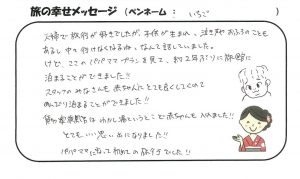 旅の幸せメッセージ (ペンネーム : いちご )
夫婦で旅行が好きでしたが、子供が生まれ、泣き声やおふろのことも
あるし中々行けなくなるね、なんて話していました。
けど、ここのパパママプランを見て、約2年ぶりに旅館に
泊まることができました!!
スタッフのみなさんも赤ちゃんにとても良くしてくれて
のんびり泊まることができました!!
貸切家族風呂はわかし湯ということで赤ちゃんも入れました!!
とてもいい思い出になりました!!
パパママになって初めての旅行でした!!